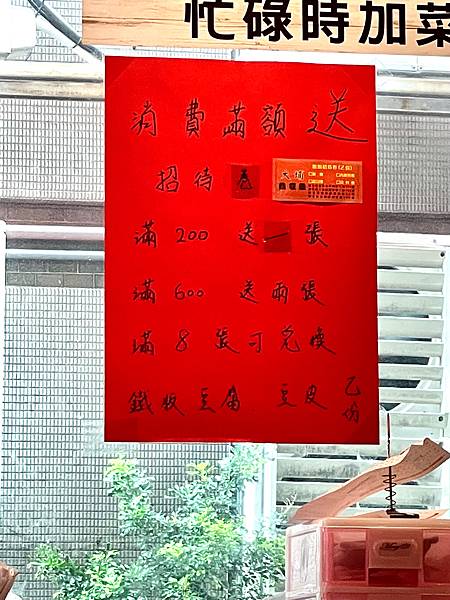 忙碌時加菜
消費滿額送
招待卷 大埔
滿200 送一張
滿600 送兩張
滿8張可兌換
鐵板豆腐 豆皮 乙份